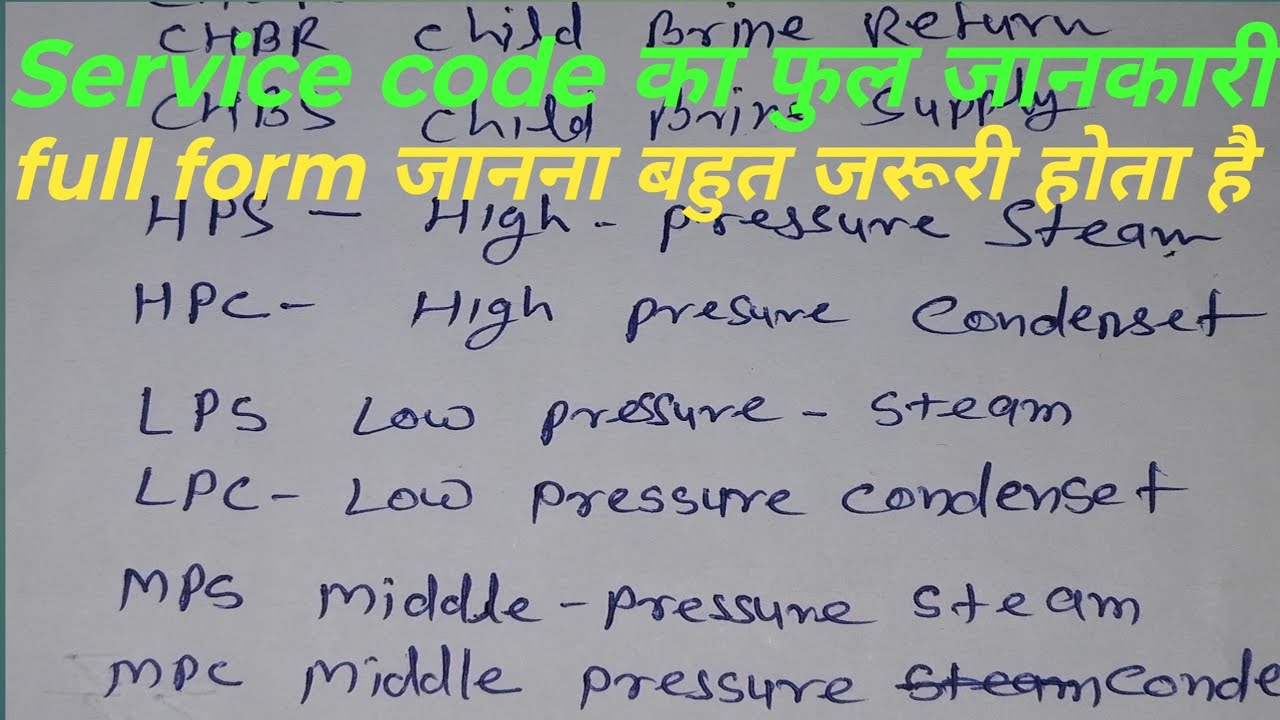 CHBR Child Brine Return
Service code का फुल जानकारी
CHBS Child Brine Supply
full form जानना बहुत जरूरी होता है
HPS - High - pressure Steam
HPC - High presure Condenset
LPS Low pressure - steam
LPC - Low pressure condenset
MPS middle - pressure steam
MPC middle pressure steam conde